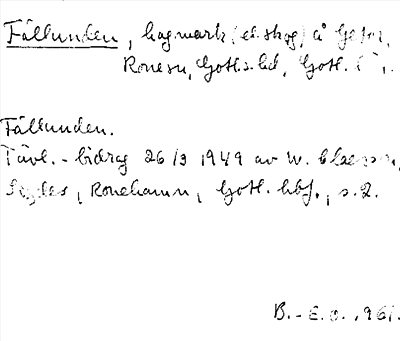 Fällunden, hagmark (el. skog) å
Ronesn, Gotl. s. hd, Gotl. l.
Fällunden.
Tävl.-bidrag 26/3 1949 av W.
Ronehamn, Gotl. hbf., s. 2.
B.-E. O. 1961.